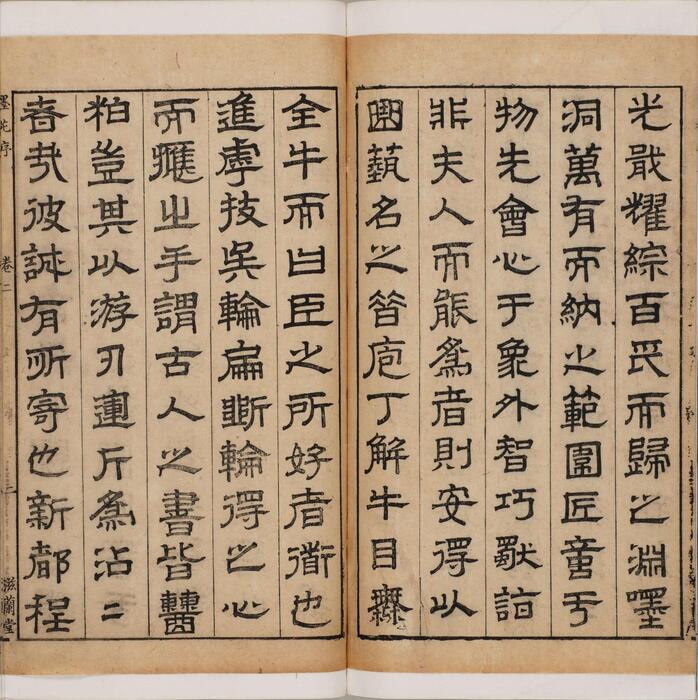 光戢耀綜百氏而歸之淵嘿
洞萬有而納之範圍匠意于
物先會心于象外智巧詣
非夫人而能爲者則安得以
曲藝名之昔庖丁解牛目無
全牛而曰臣之所好者衟也
進虖技矣輪扁斲輪得之心
而應之手謂古人之書皆醩
粕豈其以游刃運斤爲沾二
者哉彼誠有所寄也新都程
墨苑序 卷二 二 滋蘭堂